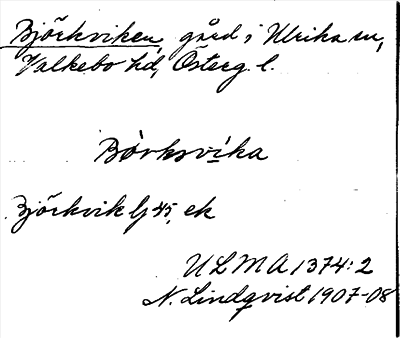 Björkviken, gård i Ulrika sn,
Valkebo hd, Österg. l.
Börksvika
Björkvik Gj 45, ek
ULMA 1374:2
N. Lindqvist 1907-08